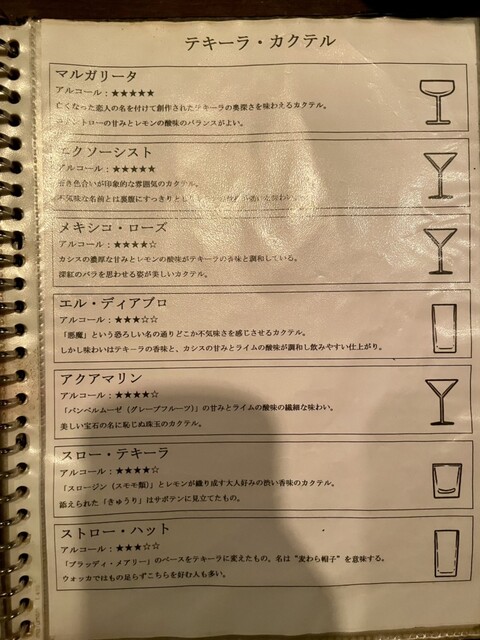 テキーラ・カクテル
マルガリータ
アルコール：★★★★★
亡くなった恋人の名を付けて創作されたテキーラの奥深さを味わえるカクテル。
コアントローの甘みとレモンの酸味のバランスがよい。
エクソーシスト
アルコール：★★★★★
青き色合いが印象的な雰囲気のカクテル。
不気味な名前とは裏腹にすっきりとし
メキシコ・ローズ
アルコール：★★★★☆
カシスの濃厚な甘みとレモンの酸味がテキーラの香味と調和している。
深紅のバラを思わせる姿が美しいカクテル。
エル・ディアブロ
アルコール：★★★☆☆
「悪魔」という恐ろしい名の通りどこか不気味さを感じさせるカクテル。
しかし味わいはテキーラの香味と、カシスの甘みとライムの酸味が調和し飲みやすい仕上がり。
アクアマリン
アルコール：★★★★☆
「パンペルムーゼ（グレープフルーツ）」の甘みとライムの酸味の繊細な味わい。
美しい宝石の名に恥じぬ珠玉のカクテル。
スロー・テキーラ
アルコール：★★★★☆
「スロージン（スモモ類）」とレモンが織り成す大人好みの渋い香味のカクテル。
添えられた「きゅうり」はサボテンに見立てたもの。
ストロー・ハット
アルコール：★★★☆☆
「ブラッディ・メアリー」のベースをテキーラに変えたもの、名は“麦わら帽子”を意味する。
ウォッカではもの足らずこちらを好む人も多い。